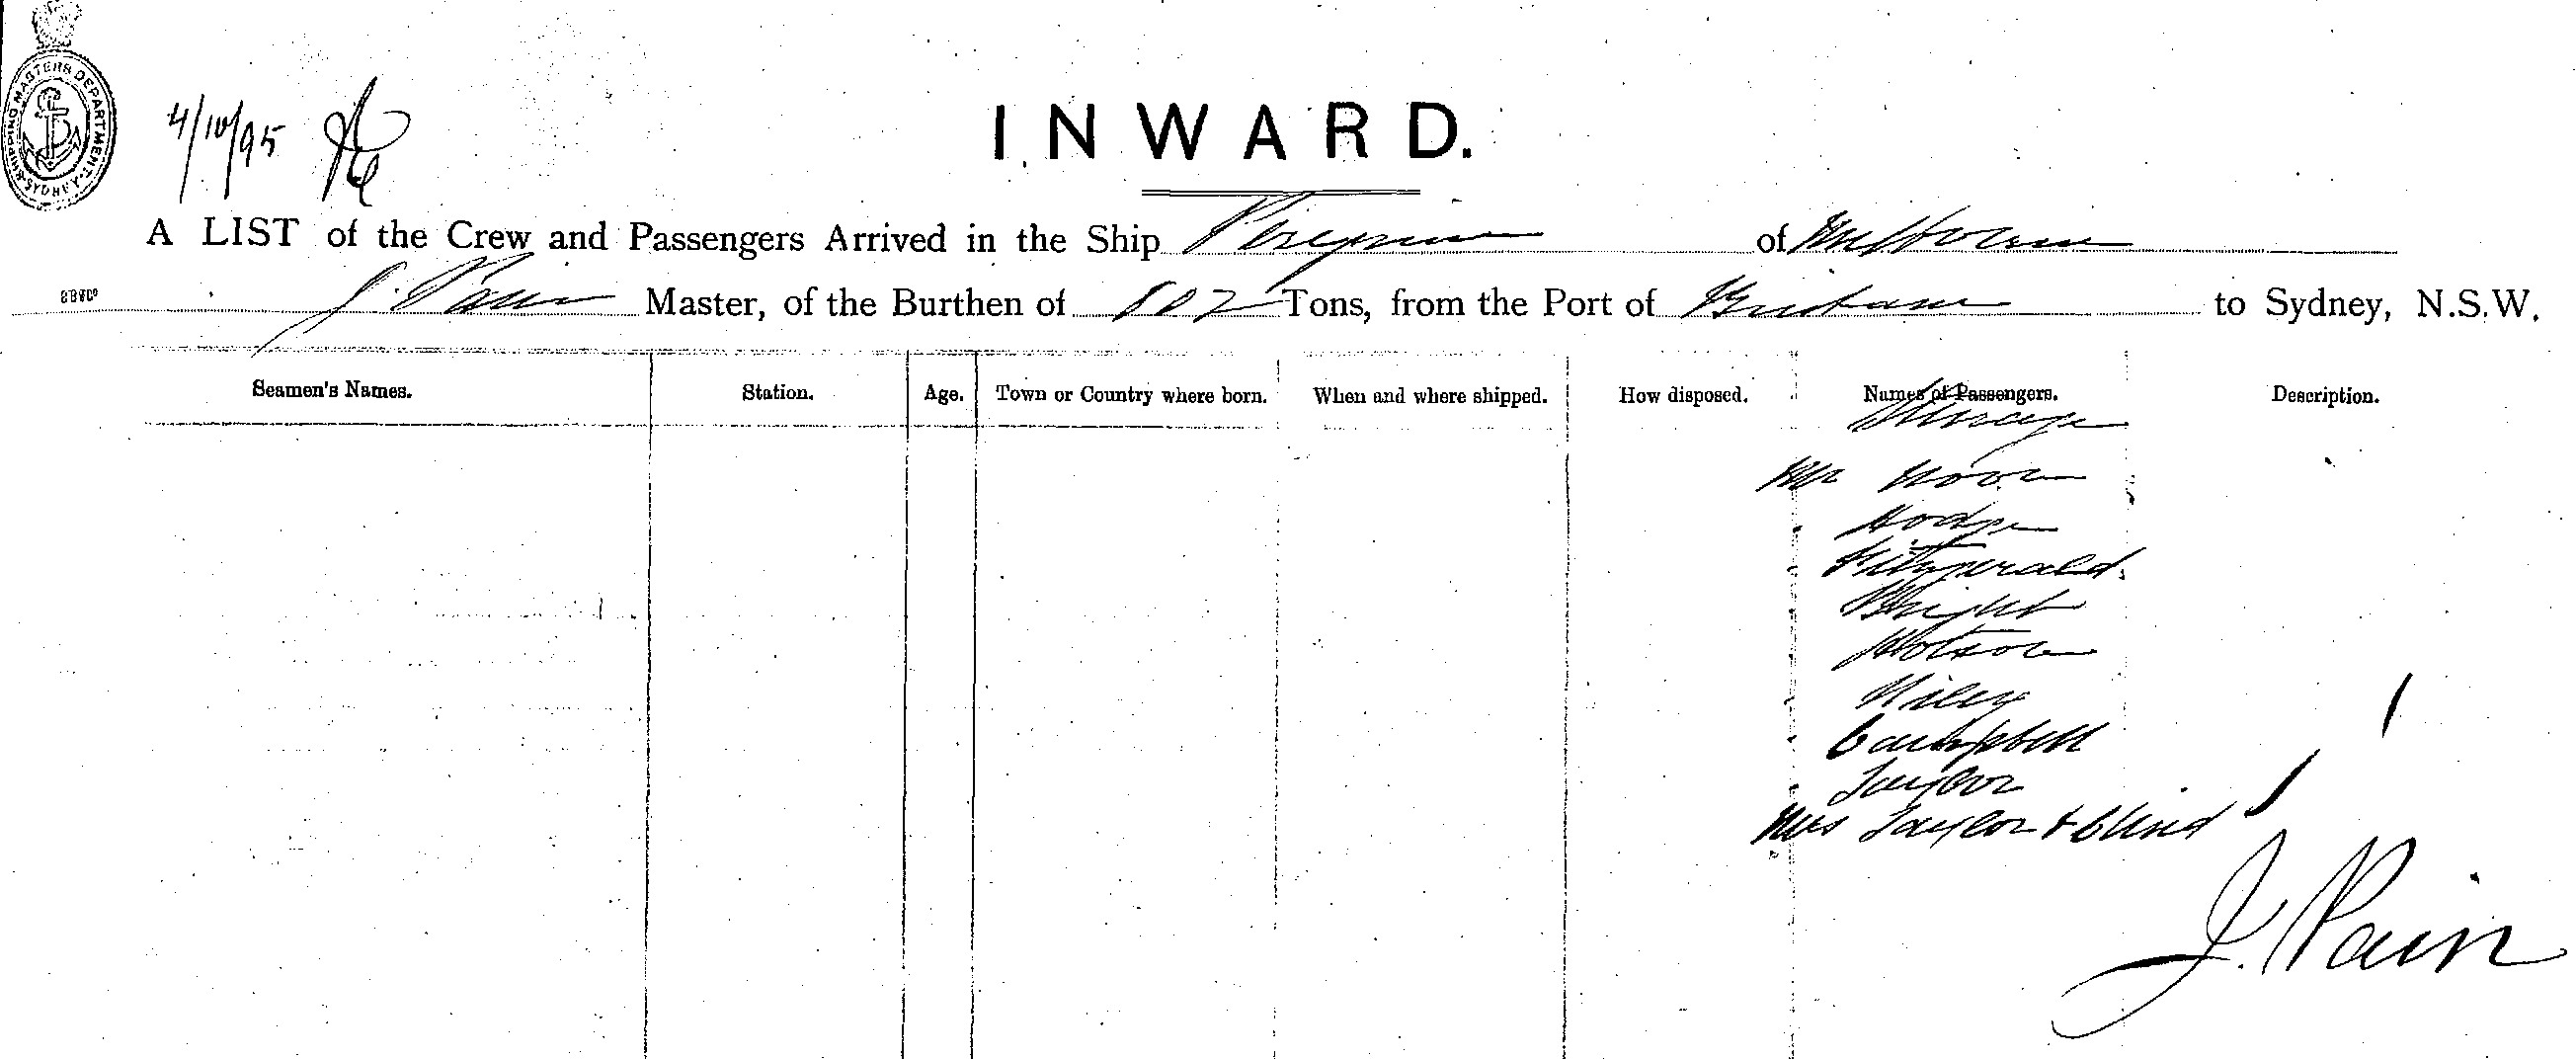 SHIPPING MASTERS DEPARTMENT. SYDNEY.
4/10/95
INWARD.
A LIST of the Crew and Passengers Arrived in the Ship Peregrine of Melbourne
J. Pain Master, of the Burthen of Tons, from the Port of Brisbane to Sydney, N.S.W.
Seamen's Names. Station. Age. Town or Country where born. When and where shipped. How disposed. Names of Passengers. Description.
Steerage
Mr Moore
" Hodge
" Fitzgerald
" Wright
" Watson
" Wiley
" Campbell
" Taylor
Mrs Taylor & Child
J. Pain